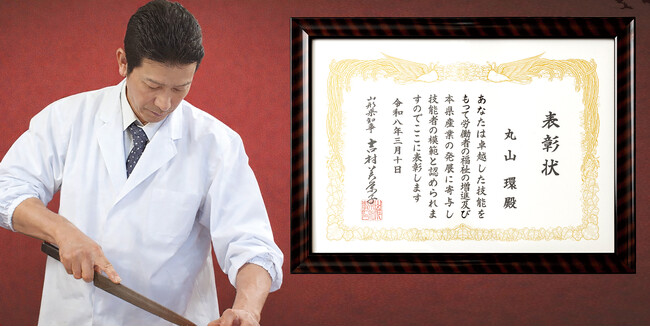 表彰状
丸山 環殿
あなたは卓越した技能を
もつて労働者の福祉の増進及び
本県産業の発展に寄与し
技能者の模範と認められま
すのでここに表彰します
令和八年三月十日
山形県知事 吉村美栄子